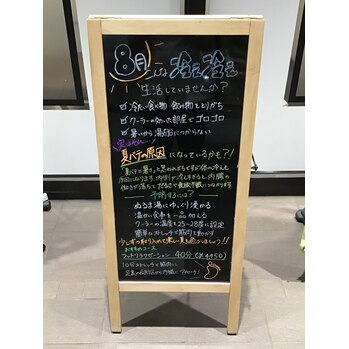 8月 こんな 冷え冷え
生活していませんか?
冷たい食べ物 飲み物をとりがち
クーラーの効いた部屋でゴロゴロ
暑いから湯船につからない
実はそれ…
夏バテの原因になっているかも?!
予防するには?
ぬるま湯にゆっくり浸かる
温かい食事を一品加える
クーラーの温度を25~28度に設定
簡単なストレッチで筋肉を動かす
少しずつ取り入れて楽しい夏を過ごしましょう!!
おすすめコース
フットリラクゼーション 40分 (¥4950)